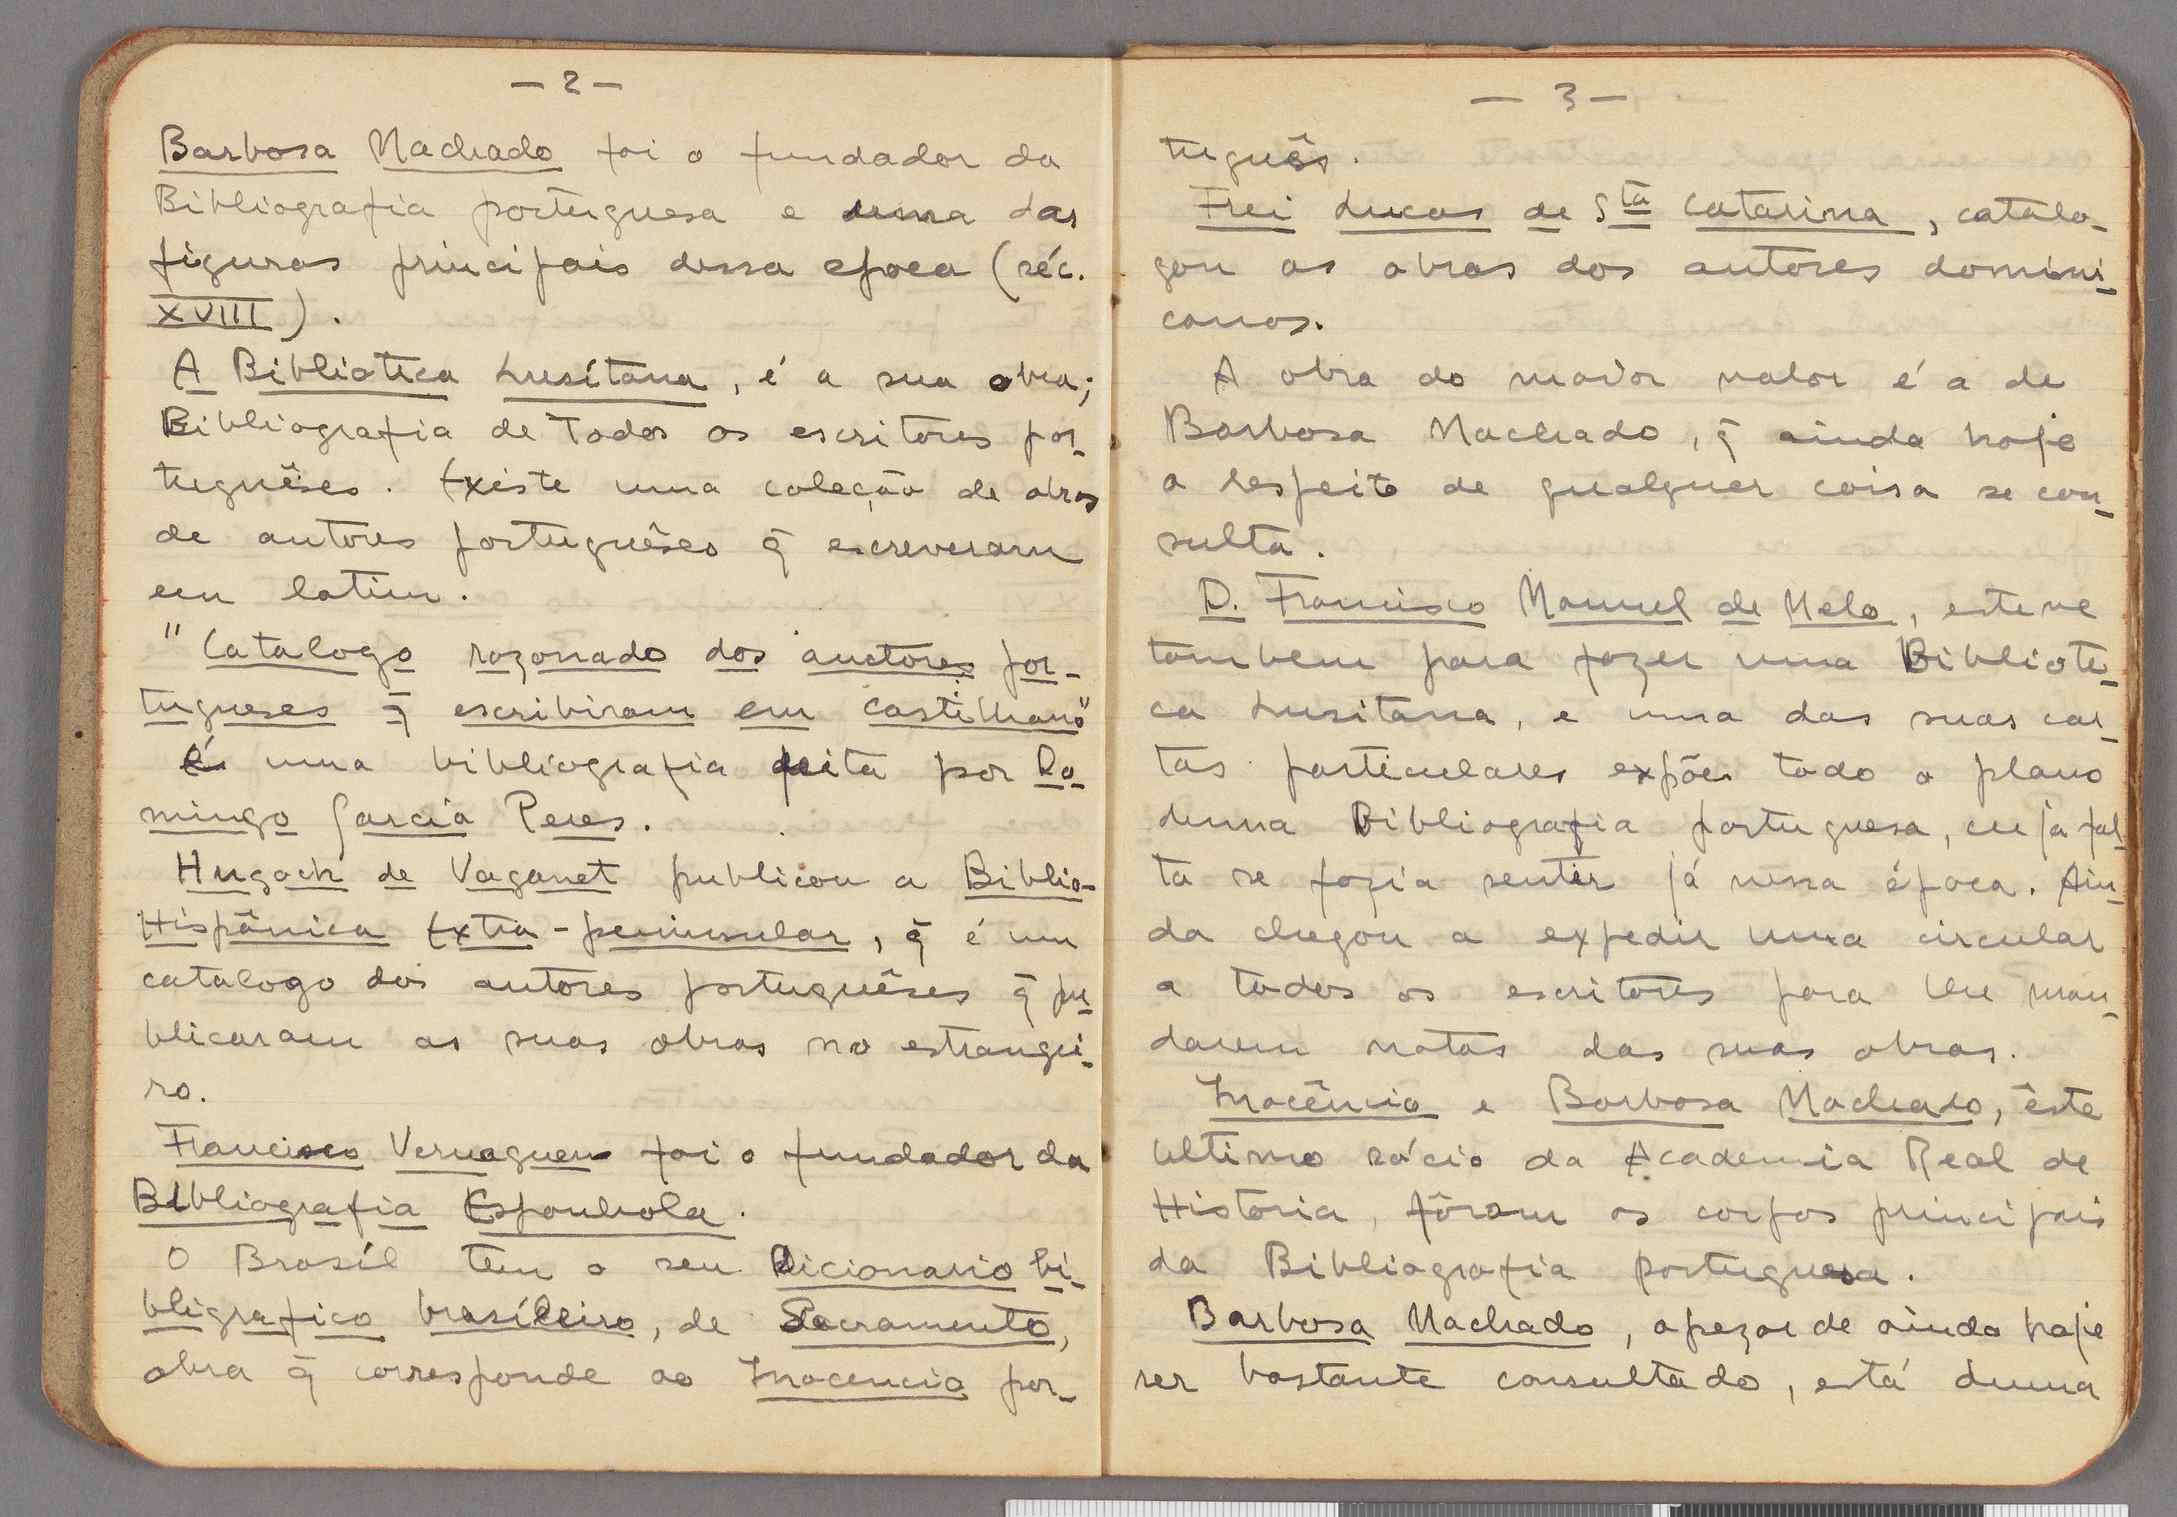 — 2 —
Barbosa Machado foi o fundador da
Bibliografia portuguesa e uma das
figuras principais dessa epoca (séc.
XVIII).
A Biblioteca Lusítana, é a sua obra;
Bibliografia de todos os escritores por-
tuguêses. Existe uma coleção de obras
de autores portuguêses q̃ escreveram
em latim.
"Catalogo razonado dos auctores por-
tugueses q̃ escribiram em castilhano"
é uma bibliografia feita por Do-
mingo Garcia Peres.
Hugach de Vaganet publicou a Biblio-
Hispânica Extra-peninsular, q̃ é um
catalogo dos autores portuguêses q̃ pu-
blicaram as suas obras no estrangei-
ro.
Francisco Vernaguen foi o fundador da
Bibliografia Espanhola.
O Brasíl tem o seu Dicionario bi-
bligrafico brasíleiro, de Sacramento,
obra q̃ corresponde ao Inocencio por-
— 3 —
tuguês.
Frei Lucas de Sta Catarina, catalo-
gou as obras dos autores domini-
canos.
A obra do maior valor é a de
Barbosa Machado, q̃ ainda hoje
a respeito de qualquer coisa se con-
sulta.
D. Francisco Manuel de Melo, esteve
tambem para fazer uma Bibliote-
ca Lusitana, e uma das suas car-
tas particulares expões todo o plano
duma Bibliografia portuguesa, cuja fal-
ta se fazia sentir já nessa época. Ain-
da chegou a expedir uma circular
a todos os escritores para lhe man-
darem notas das suas obras.
Inocêncio e Barbosa Machado, êste
ultimo sócio da Academia Real de
Historia, fôram os corpos principais
da Bibliografia portuguesa.
Barbosa Machado, apezar de ainda hoje
ser bastante consultado, está duma